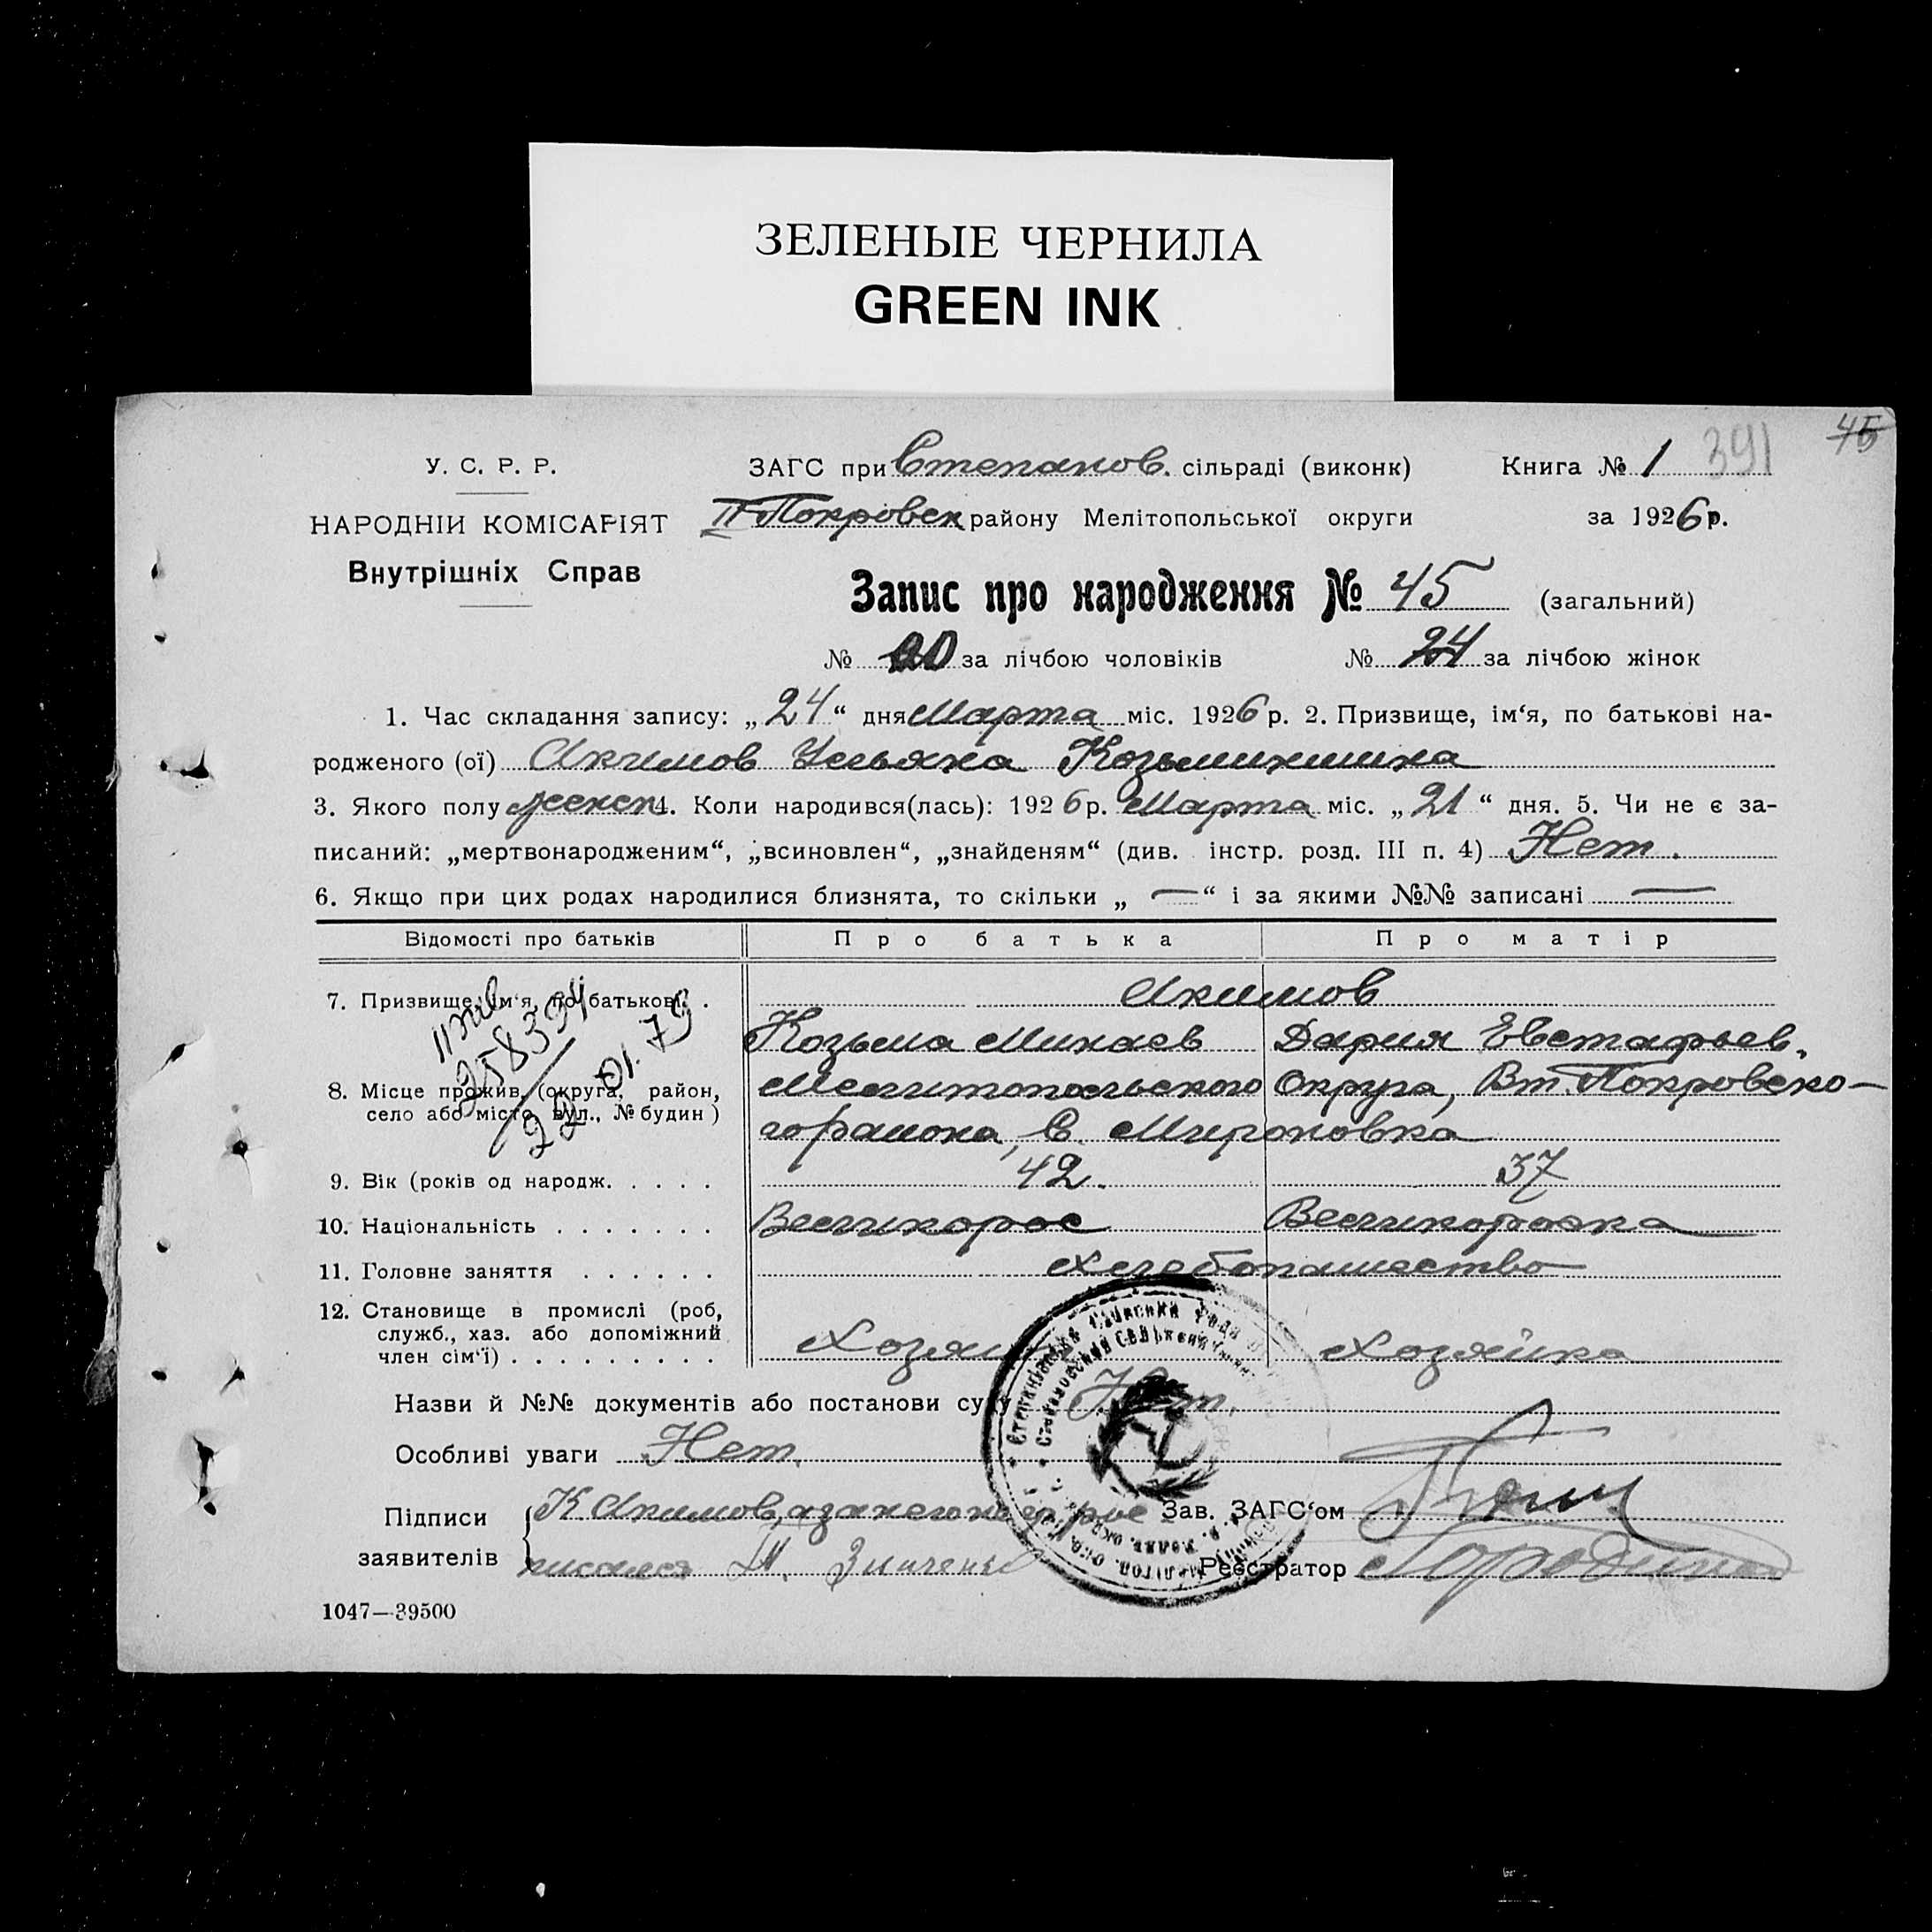 ЗЕЛЕНЫЕ ЧЕРНИЛА
GREEN INK
45
У. С. Р. Р.
ЗАГС при Степанов. сільраді (виконк)
Книга № 1 391
НАРОДНІЙ КОМІСАРІЯТ
II Покровск району Мелітопольської округи
за 1926 р.
Внутрішніх Справ
Запис про народження № 45 (загальний)
№ за лічбою чоловіків № 24 за лічбою жінок
1. Час складання запису: „24“ дня Марта міс. 1926 р. 2. Призвище, ім‘я, по батькові на-
родженого (ої) Акимов Ульяна Козьминишна
3. Якого полу женск 4. Коли народився(лась): 1926 р. Марта міс. „21“ дня. 5. Чи не є за-
писаний: „мертвонародженим“, „всиновлен“, „знайденям“ (див. інстр. розд. III п. 4) Нет.
6. Якщо при цих родах народилися близнята, то скільки „ — “ і за якими №№ записані —
Відомості про батьків Про батька Про матір
7. Призвище, ім‘я, по батькові . Акимов
Козьма Михаев Дария Евстафьев.
8. Місце прожив. (округа, район, Мелитопольского Округа, Вт. Покровско-
село або місто, вул., № будин ) го района, С. Мироновка
258334
22 01. 73
9. Вік (років од народж. . . . . 42. 37
10. Національність . . . . . . . Великорос Великороска
11. Головне заняття . . . . . . Хлебопашество
12. Становище в промислі (роб,
служб., хаз. або допоміжний
член сім‘ї) . . . . . . . . . Хозяин Хозяйка
Назви й №№ документів або постанови суду Нет.
Особливі уваги Нет.
Підписи К Акимов, а за него рос
Зав. ЗАГС‘ом
заявителів писался М. Зинченко
Реєстратор
1047—39500